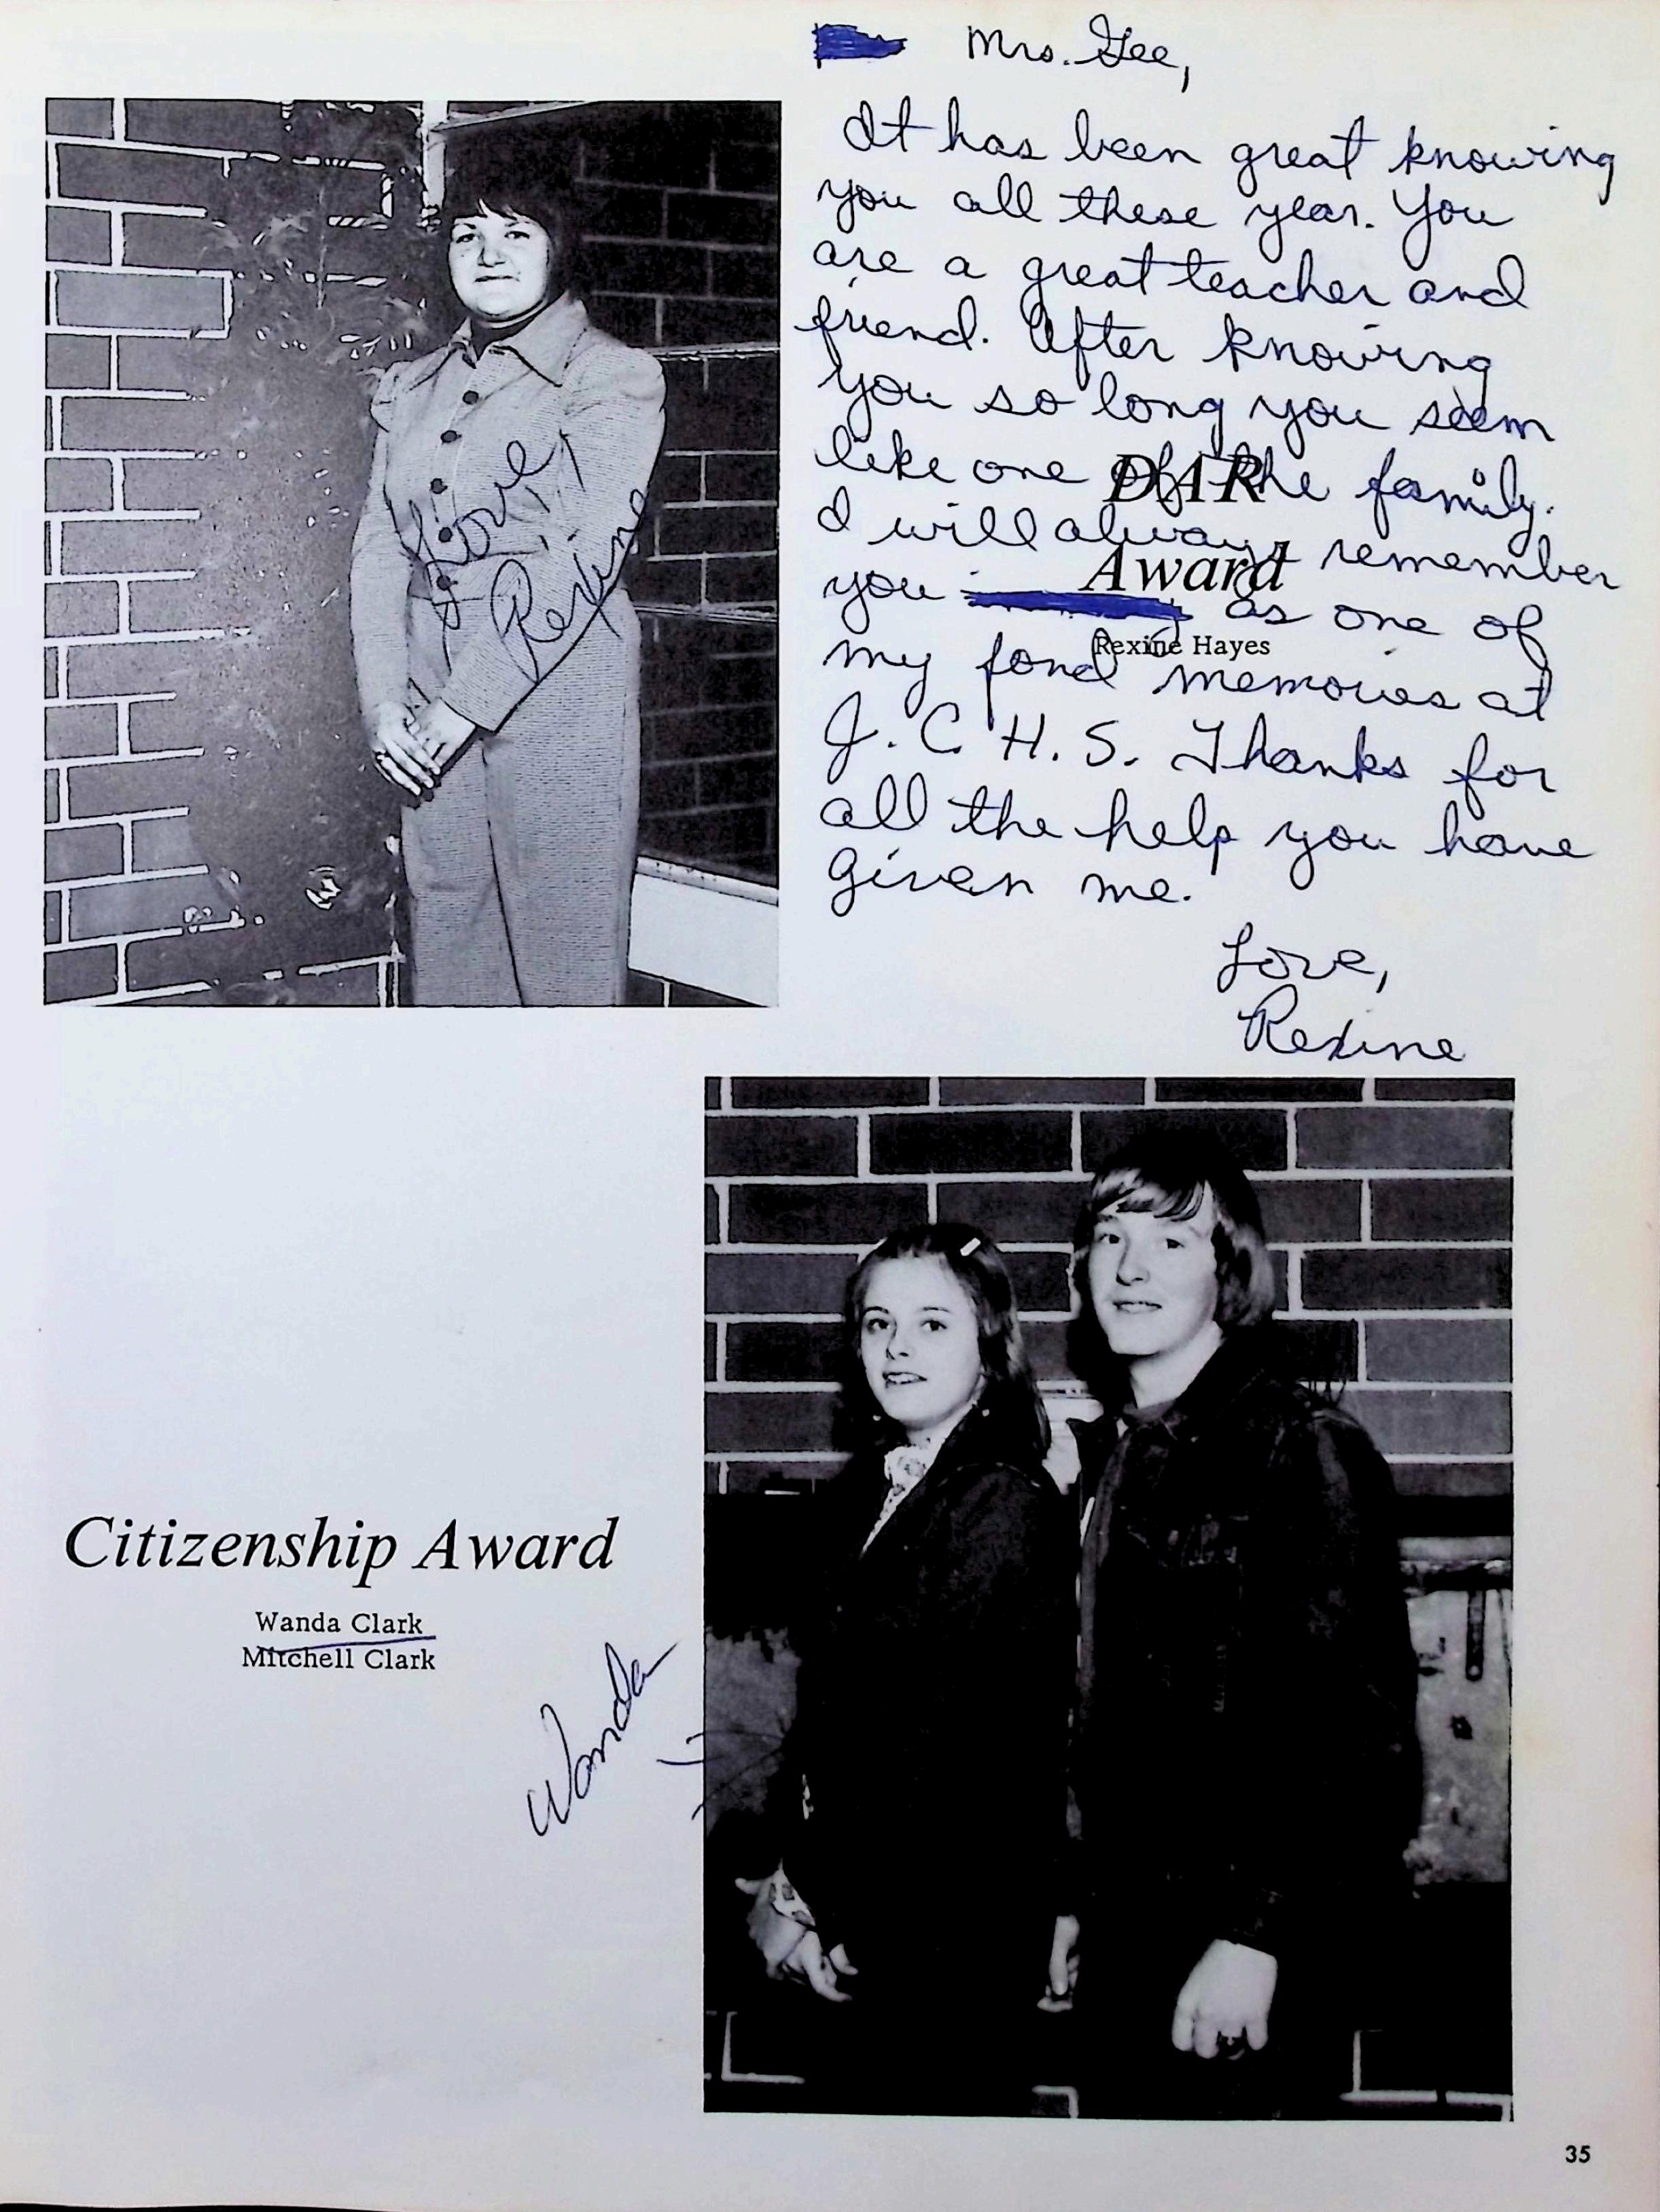 Mrs. Gee,
It has been great knowing
you all these year. You
are a great teacher and
friend. After knowing
you so long you seem
like one of the family.
I will always remember
you as one of
my fond memories at
J.C.H.S. Thanks for
all the help you have
given me.
Love,
Rexine
DAR
Award
Rexine Hayes
Love,
Rexine
Citizenship Award
Wanda Clark
Mitchell Clark
Wanda
35